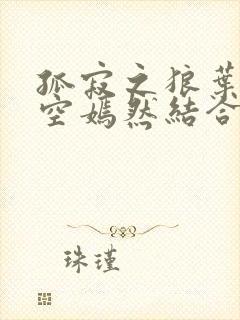 孤寂之狼葉
空嫣然結合
珠瑾